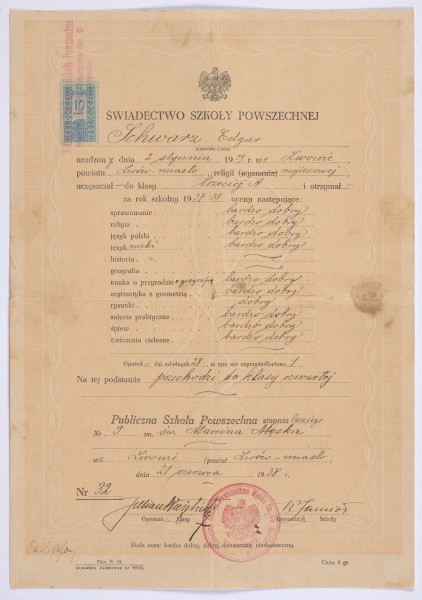 Szkoła Powszechna
10
ŚWIADECTWO SZKOŁY POWSZECHNEJ
Schwarz Edgar
(nazwisko i imię)
urodzony dnia 2 stycznia 1929 r. we Lwowie
powiatu Lwów miasto religii (wyznania) mojżeszowej
uczęszczał – do klasy trzeciej A i otrzymał –
za rok szkolny 1937/38 oceny następujące:
sprawowanie bardzo dobry
religia bardzo dobry
język polski bardzo dobry
język ruski bardzo dobry
historia
geografia
nauka o przyrodzie z geografią bardzo dobry
arytmetyka z geometrią bardzo dobry
rysunki dobry
zajęcia praktyczne bardzo dobry
śpiew bardzo dobry
ćwiczenia cielesne bardzo dobry
Opuścił – dni szkolnych 28, w tym nie usprawiedliwiono 1
Na tej podstawie przechodzi do klasy czwartej
Publiczna Szkoła Powszechna stopnia trzeciego
Nr 9 im. św. Marcina Męska
we Lwowie (powiat Lwów-miasto)
dnia 21 czerwca 1938 r.
Nr 32
Opiekun Klasy
Kierownik Szkoły
Skala ocen: bardzo dobry, dobry, dostateczny, niedostateczny.
Cena 5 gr